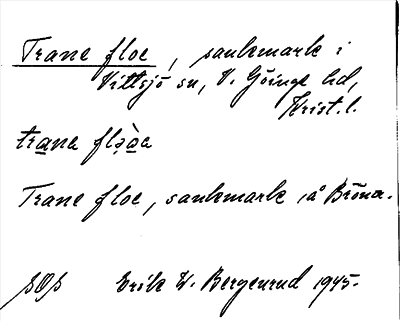 Trane floe, sankmark i
Vittsjö sn, V. Göinge hd,
Krist. l.
trana flə̀a
Trane floe, sankmark å Bröna.
SOS Erik W. Bergenrud 1945.